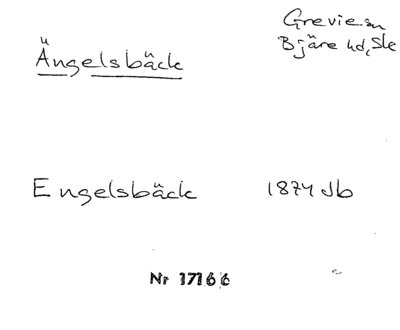 Ängelsbäck
Grevie sn
Bjäre hd, Ske
Engelsbäck 1874 Jb
Nr 17166